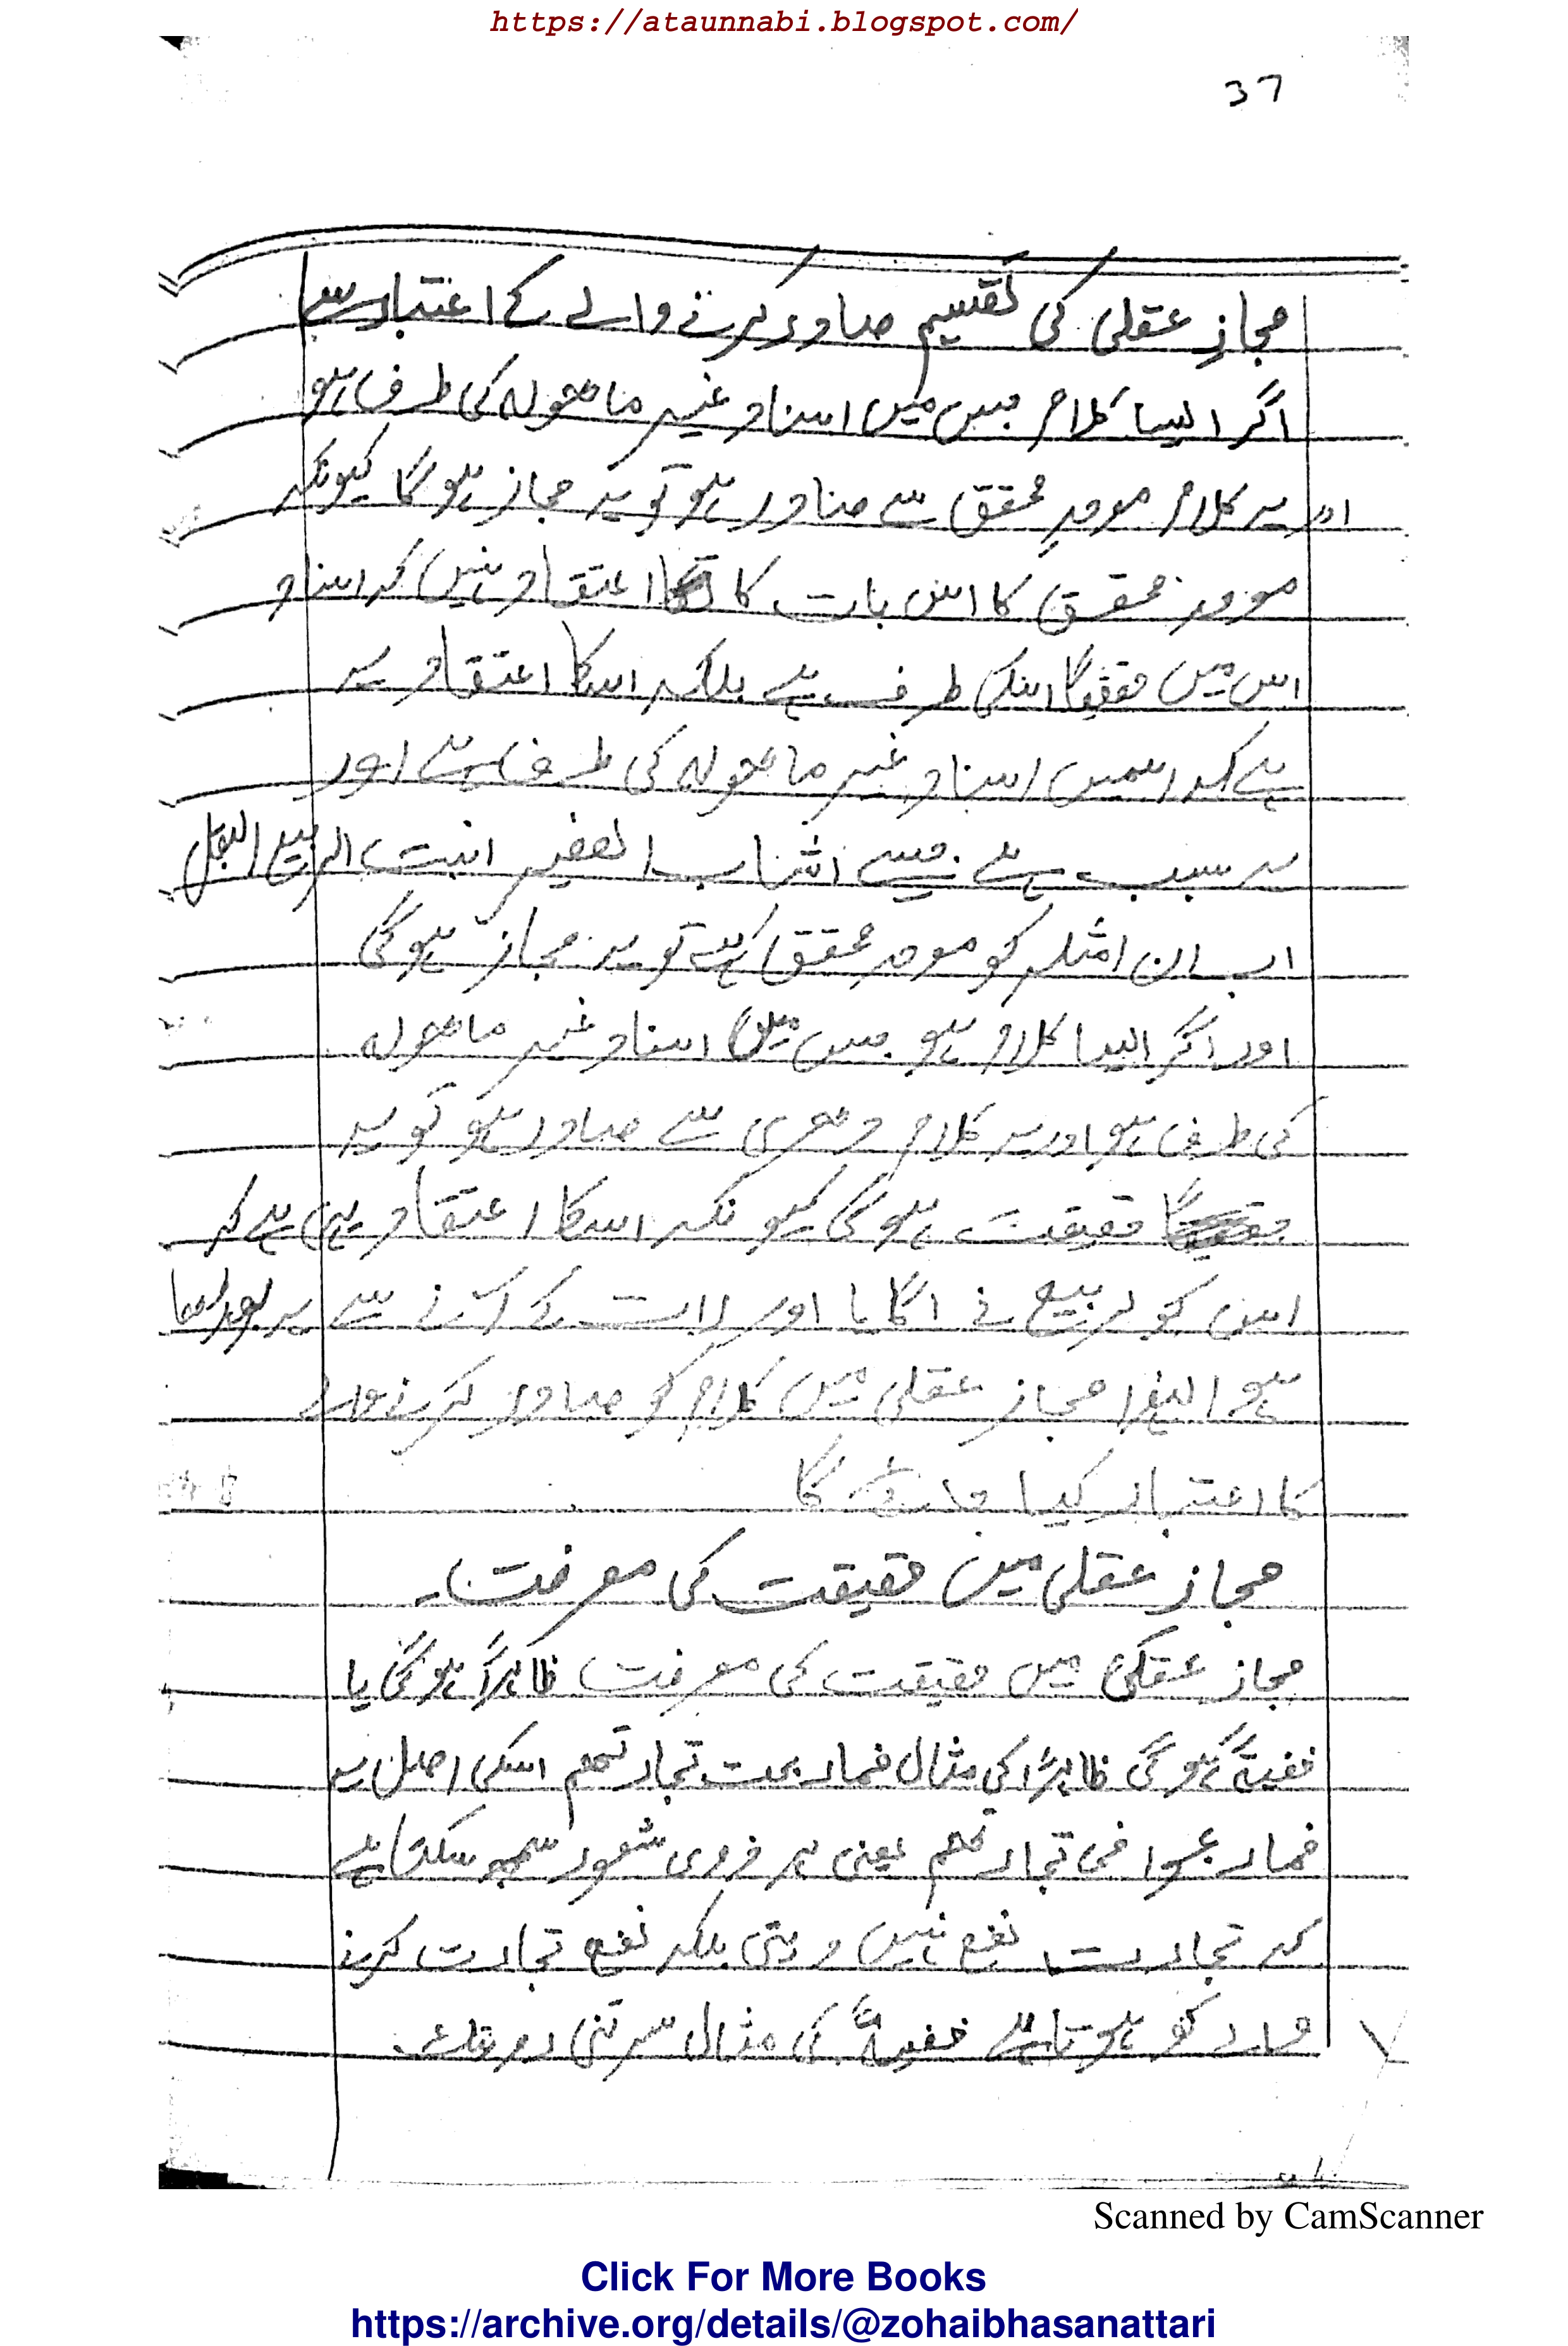 https://ataunnabi.blogspot.com/
37
مجازِ عقلی کی تقسیم صادر کرنے والے کے اعتبار سے
اگر ایسا کلام جس میں اسناد غیر ماھولہ کی طرف ہو
اور یہ کلام موحدِ محقق سے صادر ہو تو یہ مجاز ہوگا کیونکہ
موحدِ محقق کا اس بات کا اعتقاد نہیں کہ اسناد
اس میں حقیقتاً اسکی طرف ہے بلکہ اسکا اعتقاد یہ
ہے کہ اسمیں اسناد غیر ماھولہ کی طرف ہے اور
یہ سبب ہے جیسے اشاب الصغیر انبت الربیع البقل
اب ان امثلہ کو موحدِ محقق کہے تو یہ مجاز ہوگی
اور اگر ایسا کلام ہو جس میں اسناد غیر ماھولہ
کی طرف ہو اور یہ کلام دھری سے صادر ہو تو یہ
حقیقت ہوگی کیونکہ اسکا اعتقاد یہی ہے کہ
اس کو ربیع نے اگایا اور رات کے آنے سے یہ بوڑھا
ہو الہٰذا مجاز عقلی میں کلام کو صادر کرنے والے
کا اعتبار کیا جائے گا
مجاز عقلی میں حقیقت کی معرفت۔
مجاز عقلی میں حقیقت کی معرفت ظاہراً ہوگی یا
خفیۃً ہوگی ظاہراً کی مثال فمار بحت تجارتھم اسکی اصل یہ
فمار بحوا فی تجارتھم یعنی ہر فردی شعور سمجھ سکتا ہے
کہ تجارت نفع نہیں دیتی بلکہ نفع تجارت کرنے
والے کو ہوتا ہے خفیۃً کی مثال سرتنی رویتک۔
Scanned by CamScanner
Click For More Books
https://archive.org/details/@zohaibhasanattari